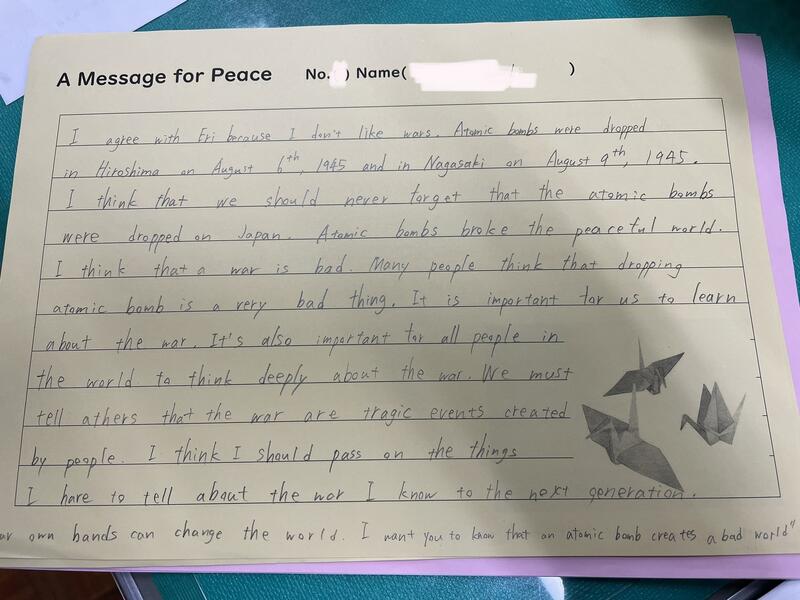 A Message for Peace No. ) Name( )
I agree with Eri because I don't like wars. Atomic bombs were dropped
in Hiroshima on August 6th, 1945 and in Nagasaki on August 9th, 1945.
I think that we should never forget that the atomic bombs
were dropped on Japan. Atomic bombs broke the peaceful world.
I think that a war is bad. Many people think that dropping
atomic bomb is a very bad thing. It is important for us to learn
about the war. It's also important for all people in
the world to think deeply about the war. We must
tell others that the war are tragic events created
by people. I think I should pass on the things
I have to tell about the war I know to the next generation.
own hands can change the world. I want you to know that an atomic bomb creates a bad world"